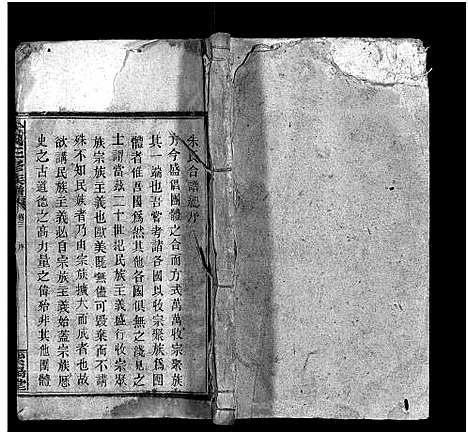 朱氏合譜總序
方今盛倡團體之合而方式萬萬收宗聚族
其一端也吾嘗考諸各國以收宗聚族爲團
體者惟吾國爲然其他各國俱無之淺見之
士謂當茲二十世紀民族主義盛行收宗聚
族宗族主義也歐美既無儘可毀棄而不講
殊不知民族者乃由宗族擴大而成者也故
欲講民族主義必自宗族主義始蓋宗族歷
史之古道德之高力量之偉殆非其他團體